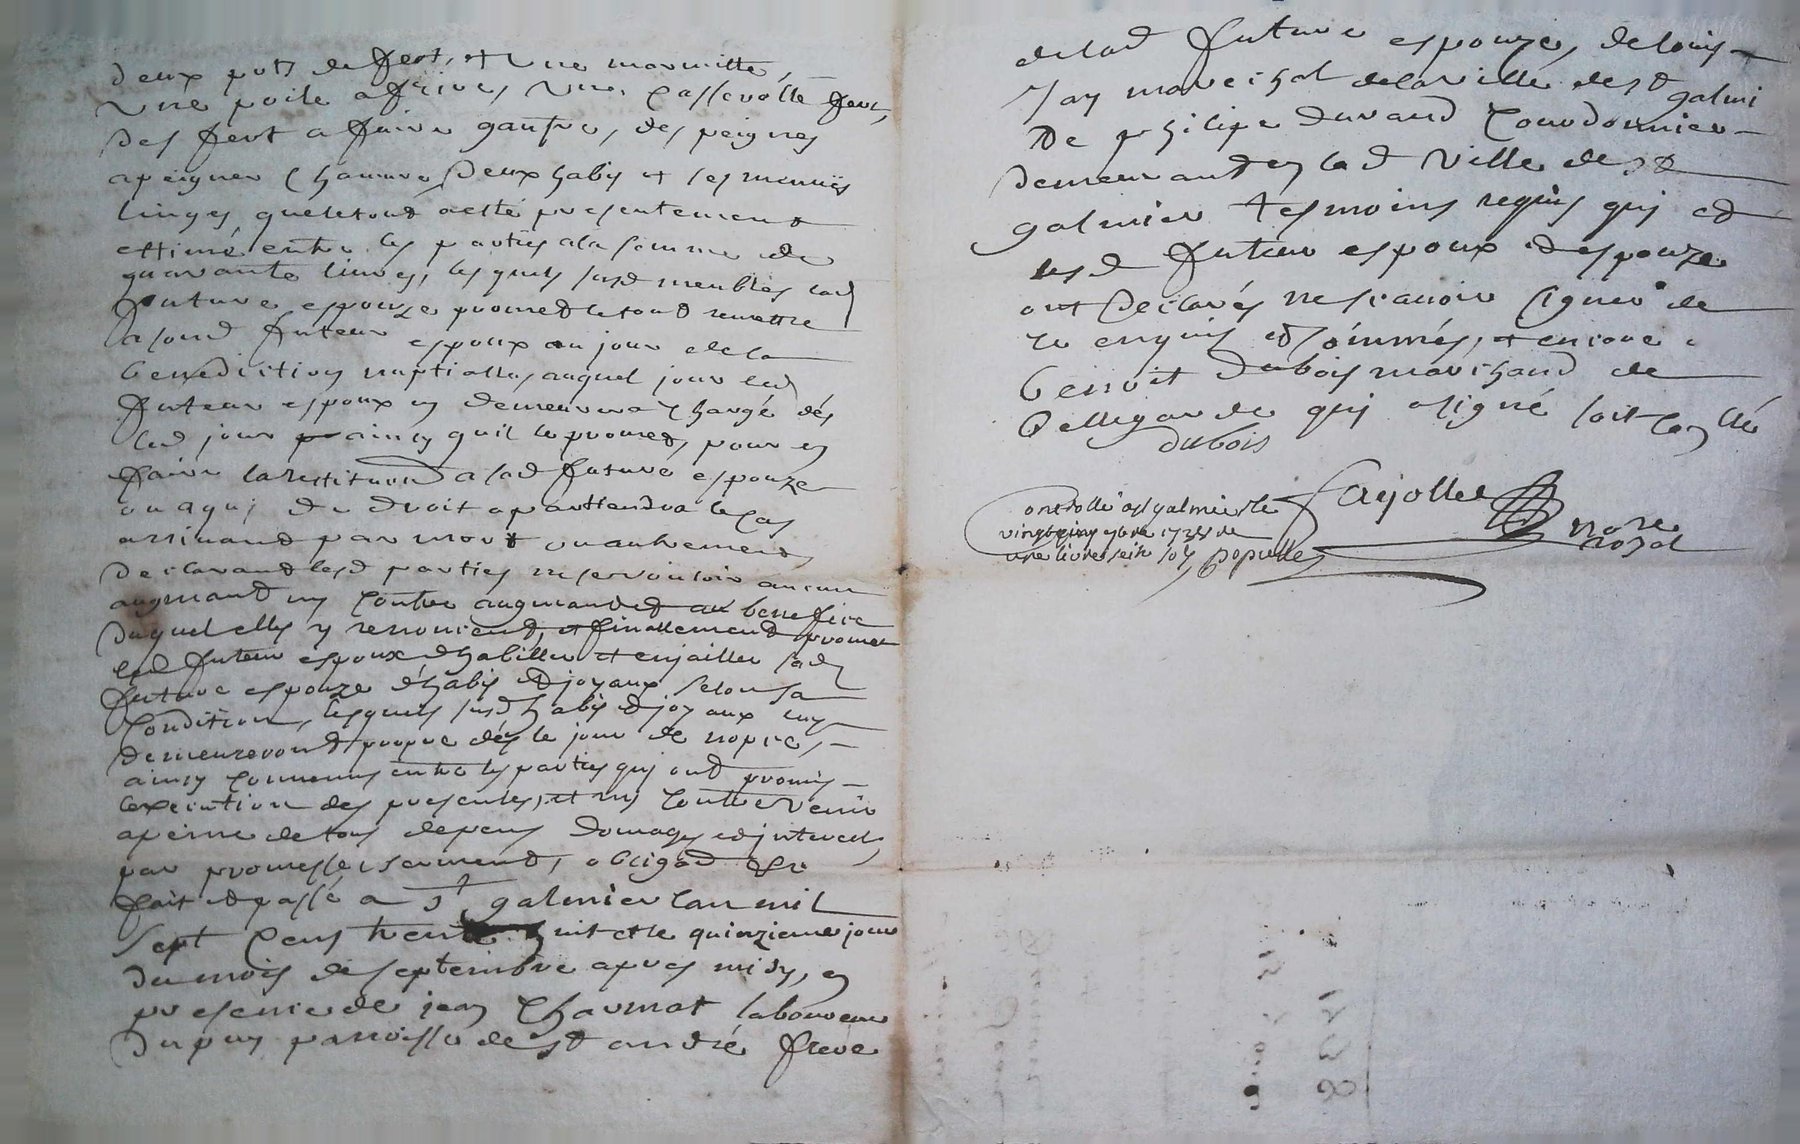 deux pots de fert, et une marmitte,
une poile a frires, une casserolle fert,
des fert a faire gaufre, des peignes
a peigner chanvre, deux habis et ses menus
linges, que le tout a esté presentement
estimé entre les parties a la somme de
quarante livres, lesquels susd meubles lad
future espouze promed le toud remettre
a soud futeur espoux au jour de la
benediction nuptialle, auquel jour led
futeur espoux en demeurera chargé dés
led jour ainsy quil le promed, pour en
faire la restitution a lad future espouze
ou a quj de droit apartiendra le cas
arrivand par mort ou autremend
declarand lesd parties ne se vouloir aucun
augmand ny contre augmand et au benefice
duquel elles y renoncend, et finallemend promet
led futeur espoux d'habiller et enjailler sad
future espouze d'habis et joyaux selon sa
condition, lesquels susd habis et joyaux luy
demeurerond propre dés le jour de nopces,
ainsy convenus entre les parties quj ond promis
l'execution des presentes, et ny contrevenir
a peine de tous depens domages et jnterest,
par promesse, sermend, obligad &c
fait et passé a St galmier l'an mil
sept cens trente huit et le quinzieme jour
du mois de septembre apres midy, en
presence de jean Chaumat laboureur
du puy parroisse de St andré frere
de lad future espouze, de louis
Jay marechal de la ville de St galmi
De philipe durand Courdonnier
demeurand en lad ville de St
galmier tesmoins requis quj et
lesd futeur espoux et espouze
ont declarés ne scavoir signer de
ce enquis et sommés, et encore
benoit dubois marchand de
Bellegarde quj a signé soit conllé
dubois
Controllé a St galmier le
vingt cinq 7bre 1738 de
une livre seize sols populle
Fayolle
nore
royal